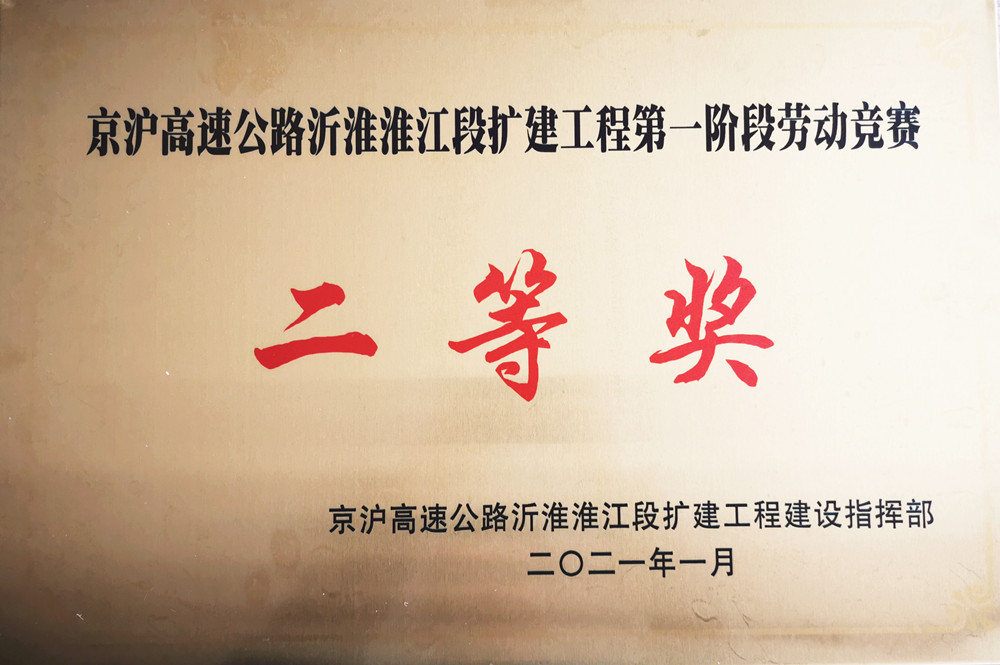 京沪高速公路沂淮淮江段扩建工程第一阶段劳动竞赛
二等奖
京沪高速公路沂淮淮江段扩建工程建设指挥部
二〇二一年一月